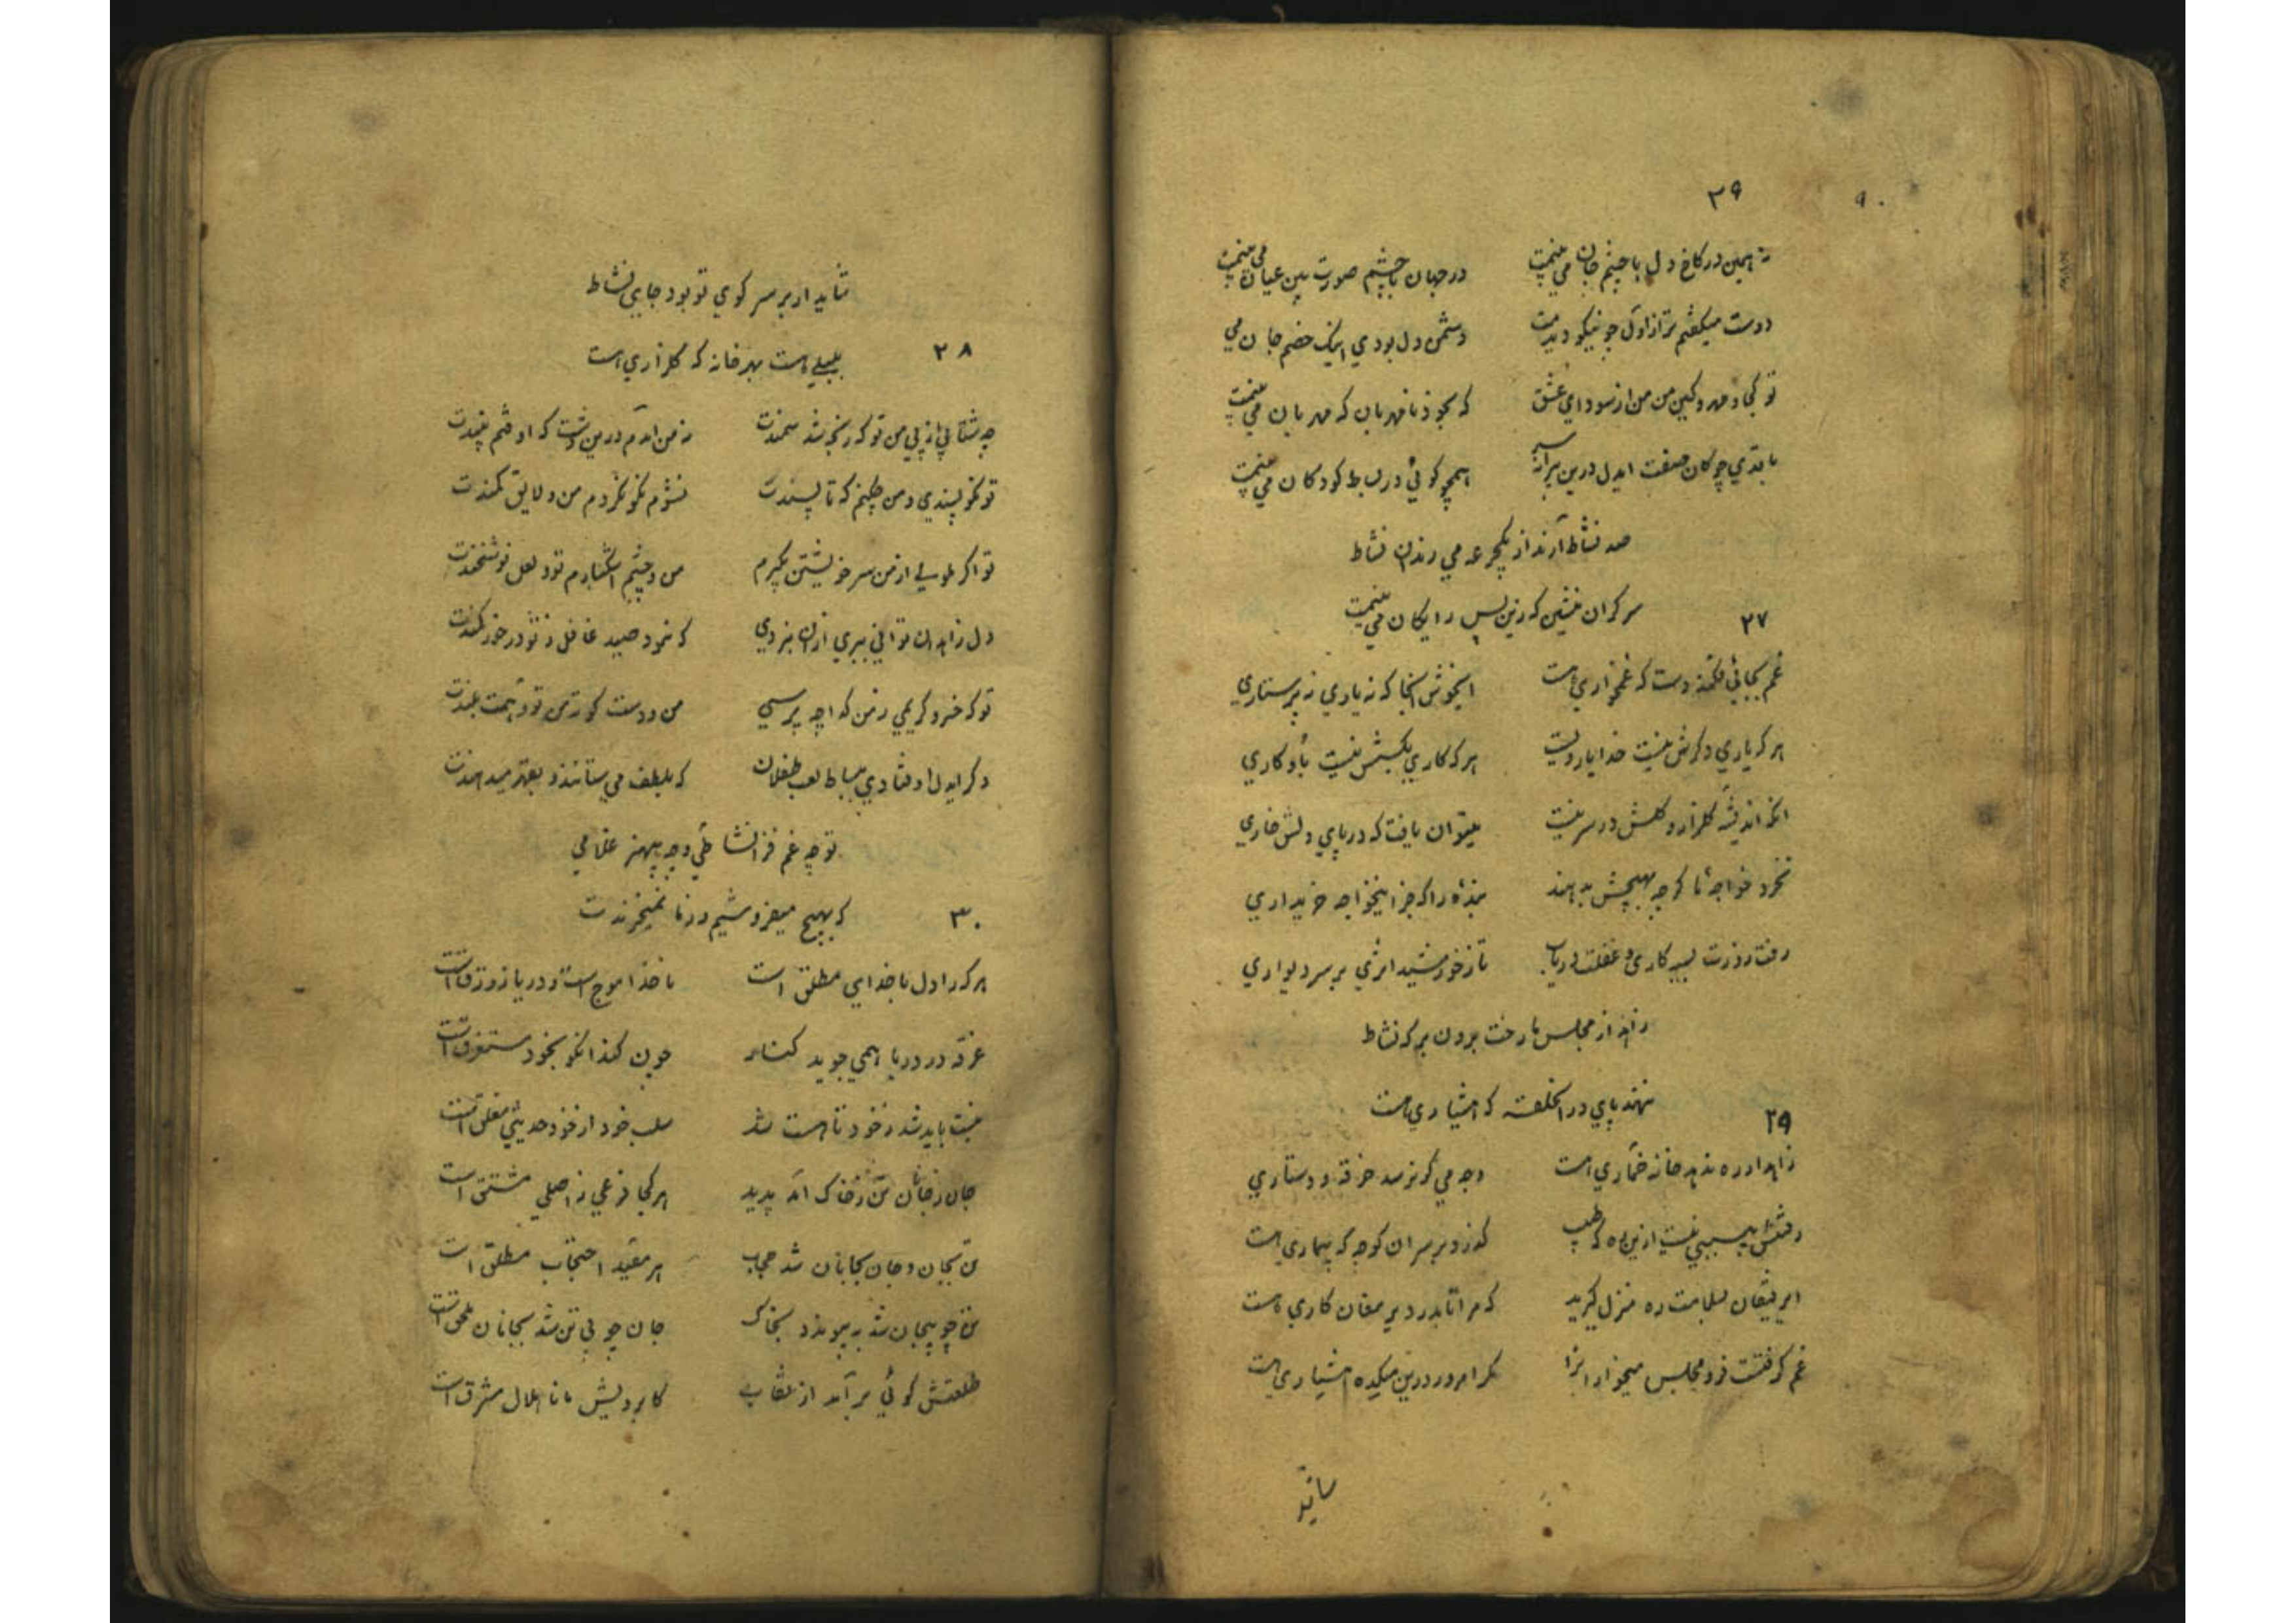 ۹۰ ۳۹
نه همین در کاخ دل با چشم جان می بینمت در جهان با چشم صورت بین عیان می بینمت
دوست میگفتم ترا ز اول چو نیکو دیدمت دشمن دل بودی اینک خصم جان می
تو کجا و مهر و کین من من از سودای عشق که بخود نامهربان که مهربان می بینمت
با قدی چوکان صفت ایدل درین پیرانه سر همچو کوئی در بساط کودکان می بینمت
صد نشاط آرند از یکجرعه می رندان نشاط
سرکران منشین که زین پس رایکان می بینمت ۲۷
غم بجائی فکند دست که غمخواری هست ایخوش آنجا که نه یاری نه پرستاری
هر که یاری دکرش نیست خدا یار ویست هر که کاری بکسش نیست باو کاری
انکه اندیشه کلزار و کلش در سر نیست میتوان یافت که در پای دلش خاری
نخرد خواجه ما کرچه بهیچش بدهند بنده را که جز اینخواجه خریداری
رفت روزت بسیه کاری و غفلت دریاب تا ز خورشید اثری بر سر دیواری
زاهد از مجلس ما رخت برون بر که نشاط
ننهد پای در آنحلقه که هشیاری هست ۲۹
زاهد ار ره ندهد خانه خماری هست وجه می کر نرسد خرقه و دستاری
رفتنش بی سببی نیست ازین ره که طبیب کذرد بر سر آن کوچه که بیماری هست
ای رفیقان بسلامت ره منزل کیرید که مرا تا بدر دیر مغان کاری هست
غم کرفتت فرو مجلس میخوارانرا مکر امروز درین میکده هشیاری هست
شاید
شاید ار بر سر کوی تو بود جای نشاط
بلبلی هست بهر خانه که کلزاری است ۲۸
چه شتابی از پی من تو که رنجه شد سمندت نه من آمدم درین دشت که اوفتم ببندت
تو نکو پسندی و من چکنم که تا پسندت نشوم نکو نکردم من و لایق کمندت
تو اکر ملولی از من سر خویشتن بکیرم من و چشم اشکبارم تو و لعل نوشخندت
دل زاهدان توانی ببری ازان نبردی که نبود صید غافل ز تو در خور کمندت
تو که خسرو کریمی ز من کدا چه پرسی من و دست کوته من تو و همت بلندت
دکر ایدل اوفتادی ببساط لعب طفلان که بلطف می ستانند و بقهر میدهندت
تو چه غم فزا نشاطی و چه بیهنر غلامی
که بهیچ میفروشیم و ز ما نمیخرندت ۳۰
هر که را دل با خدای مطلق است ناخدا موج است و دریا زورق است
غرقه در دریا همی جوید کنار چون کند انکو بخود مستغرق است
نیست باید شد ز خود تا هست شد سلب خود از خود حدیثی مغلق است
جان ز جانان تن ز خاک آمد پدید هر کجا فرعی ز اصلی مشتق است
تن بجان و جان بجانان شد حجاب هر مقید احتجاب مطلق است
تن چو بیجان شد به پیوندد بخاک جان چو بی تن شد بجانان ملحق است
طلعتش کوئی بر آمد از نقاب کابرویش مانا هلال مشرق است